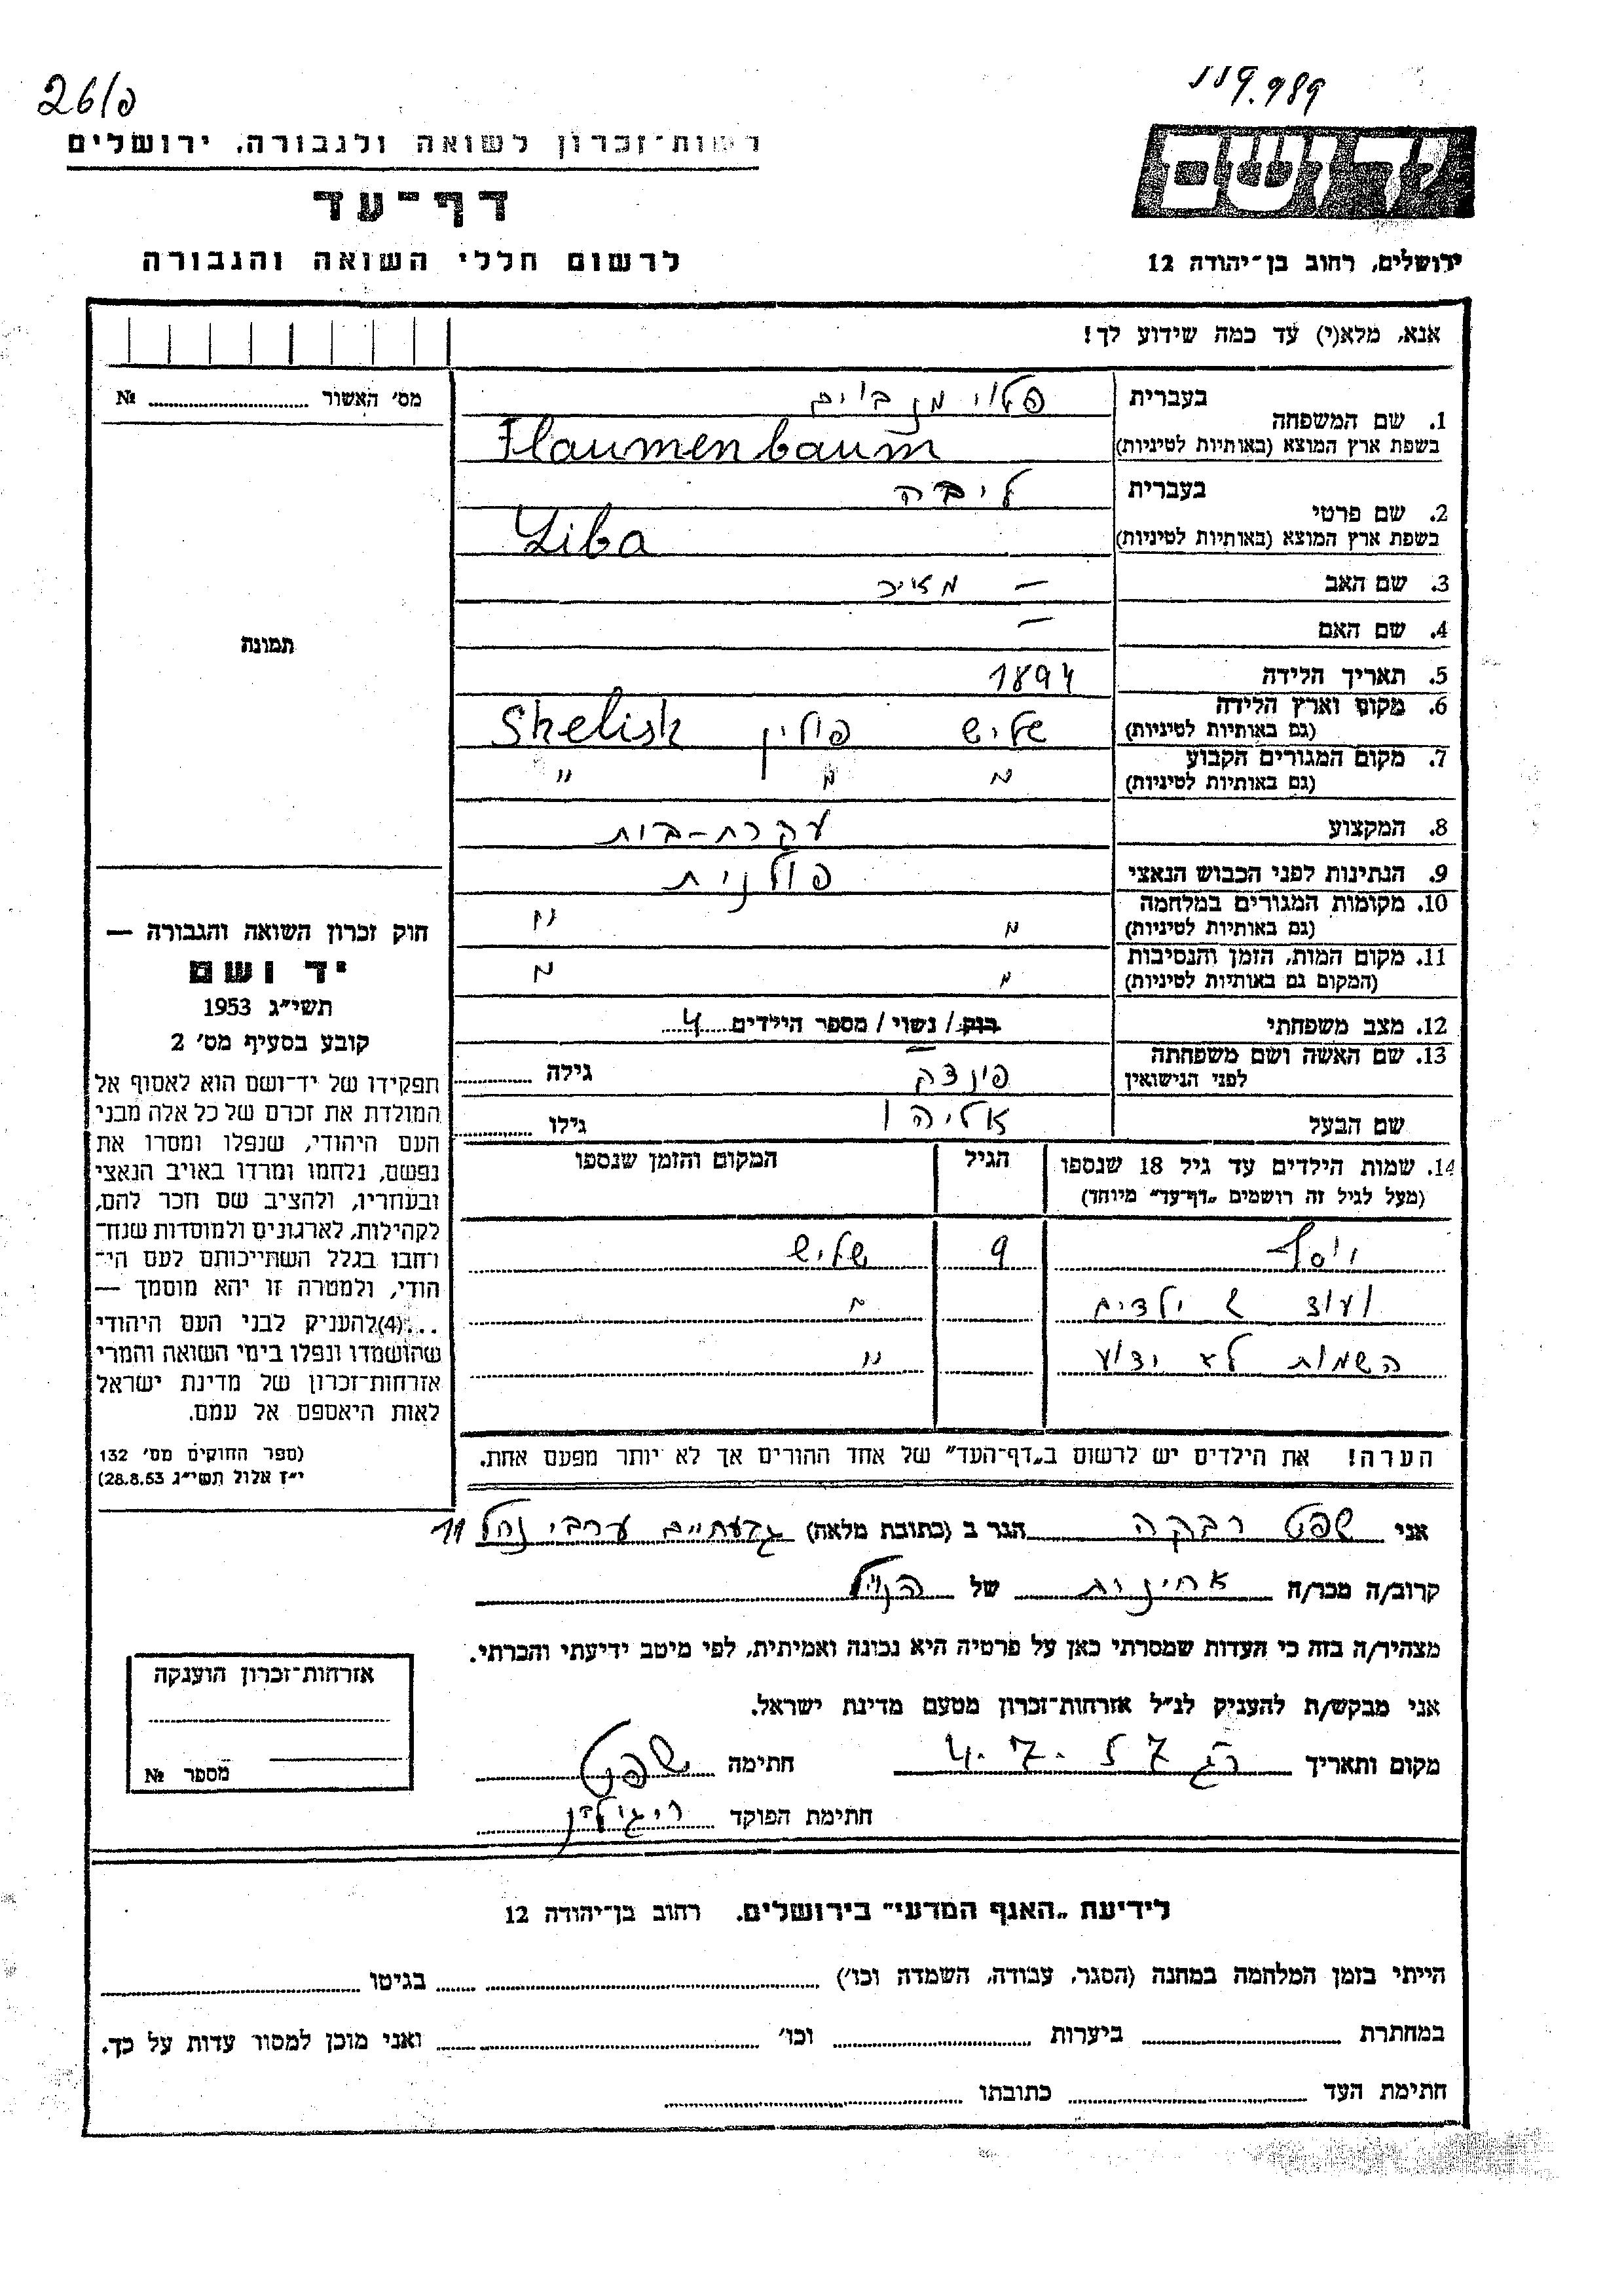 26/פ
119.989
רשות־זכרון לשואה ולגבורה. ירושלים
דף־עד
לרשום חללי השואה והגבורה
יד ושם
ירושלים, רחוב בן־יהודה 12
אנא, מלא(י) עד כמה שידוע לך!
מס׳ האשור № ..........
תמונה
1. שם המשפחה
בעברית
פלוימנבוים
בשפת ארץ המוצא (באותיות לטיניות)
Flaumenbaum
2. שם פרטי
בעברית
ליבה
בשפת ארץ המוצא (באותיות לטיניות)
Liba
3. שם האב
—
4. שם האם
—
5. תאריך הלידה
1894
6. מקום וארץ הלידה
(גם באותיות לטיניות)
שליש פולין Shelisk
7. מקום המגורים הקבוע
(גם באותיות לטיניות)
" " "
8. המקצוע
עקרת-בית
9. הנתינות לפני הכבוש הנאצי
פולנית
10. מקומות המגורים במלחמה
(גם באותיות לטיניות)
" "
11. מקום המות, הזמן והנסיבות
(המקום גם באותיות לטיניות)
" "
12. מצב משפחתי
רווק / נשוי / מספר הילדים 4
13. שם האשה ושם משפחתה
לפני הנישואין
גילה
שם הבעל
אליהו
גילו
14. שמות הילדים עד גיל 18 שנספו
(מעל לגיל זה רושמים „דף־עד״ מיוחד)
הגיל
המקום והזמן שנספו
יוסף 9 שליש
ועוד ילדים "
השמות לא ידוע "
הערה! את הילדים יש לרשום ב„דף־העד״ של אחד ההורים אך לא יותר מפעם אחת.
חוק זכרון השואה והגבורה —
יד ושם
תשי״ג 1953
קובע בסעיף מס׳ 2
תפקידו של יד־ושם הוא לאסוף אל
המולדת את זכרם של כל אלה מבני
העם היהודי, שנפלו ומסרו את
נפשם, נלחמו ומרדו באויב הנאצי
ובעוזריו, ולהציב שם וזכר להם,
לקהילות, לארגונים ולמוסדות שנח־
רחבו בגלל השתייכותם לעם הי־
הודי, ולמטרה זו יהא מוסמך —
...(4)להעניק לבני העם היהודי
שהושמדו ונפלו בימי השואה והמרי
אזרחות־זכרון של מדינת ישראל
לאות היאספם אל עמם.
(ספר החוקים מס׳ 132
י״ז אלול תשי״ג 28.8.53)
אני שפט רבקה הגר ב (כתובת מלאה) גבעתיים ערבי נחל 11
קרוב/ה מכר/ה אחינית של הנ״ל
מצהיר/ה בזה כי העדות שמסרתי כאן על פרטיה היא נכונה ואמיתית, לפי מיטב ידיעתי והכרתי.
אני מבקש/ת להעניק לנ״ל אזרחות־זכרון מטעם מדינת ישראל.
מקום ותאריך רג 4.7.57 חתימה שפט
חתימת הפוקד
אזרחות־זכרון הוענקה
מספר №
לידיעת „האגף המדעי״ בירושלים. רחוב בן־יהודה 12
הייתי בזמן המלחמה במחנה (הסגר, עבודה, השמדה וכו׳) .......... בגיטו ..........
במחתרת .......... ביערות .......... וכו׳ .......... ואני מוכן למסור עדות על כך.
חתימת העד .......... כתובתו ..........